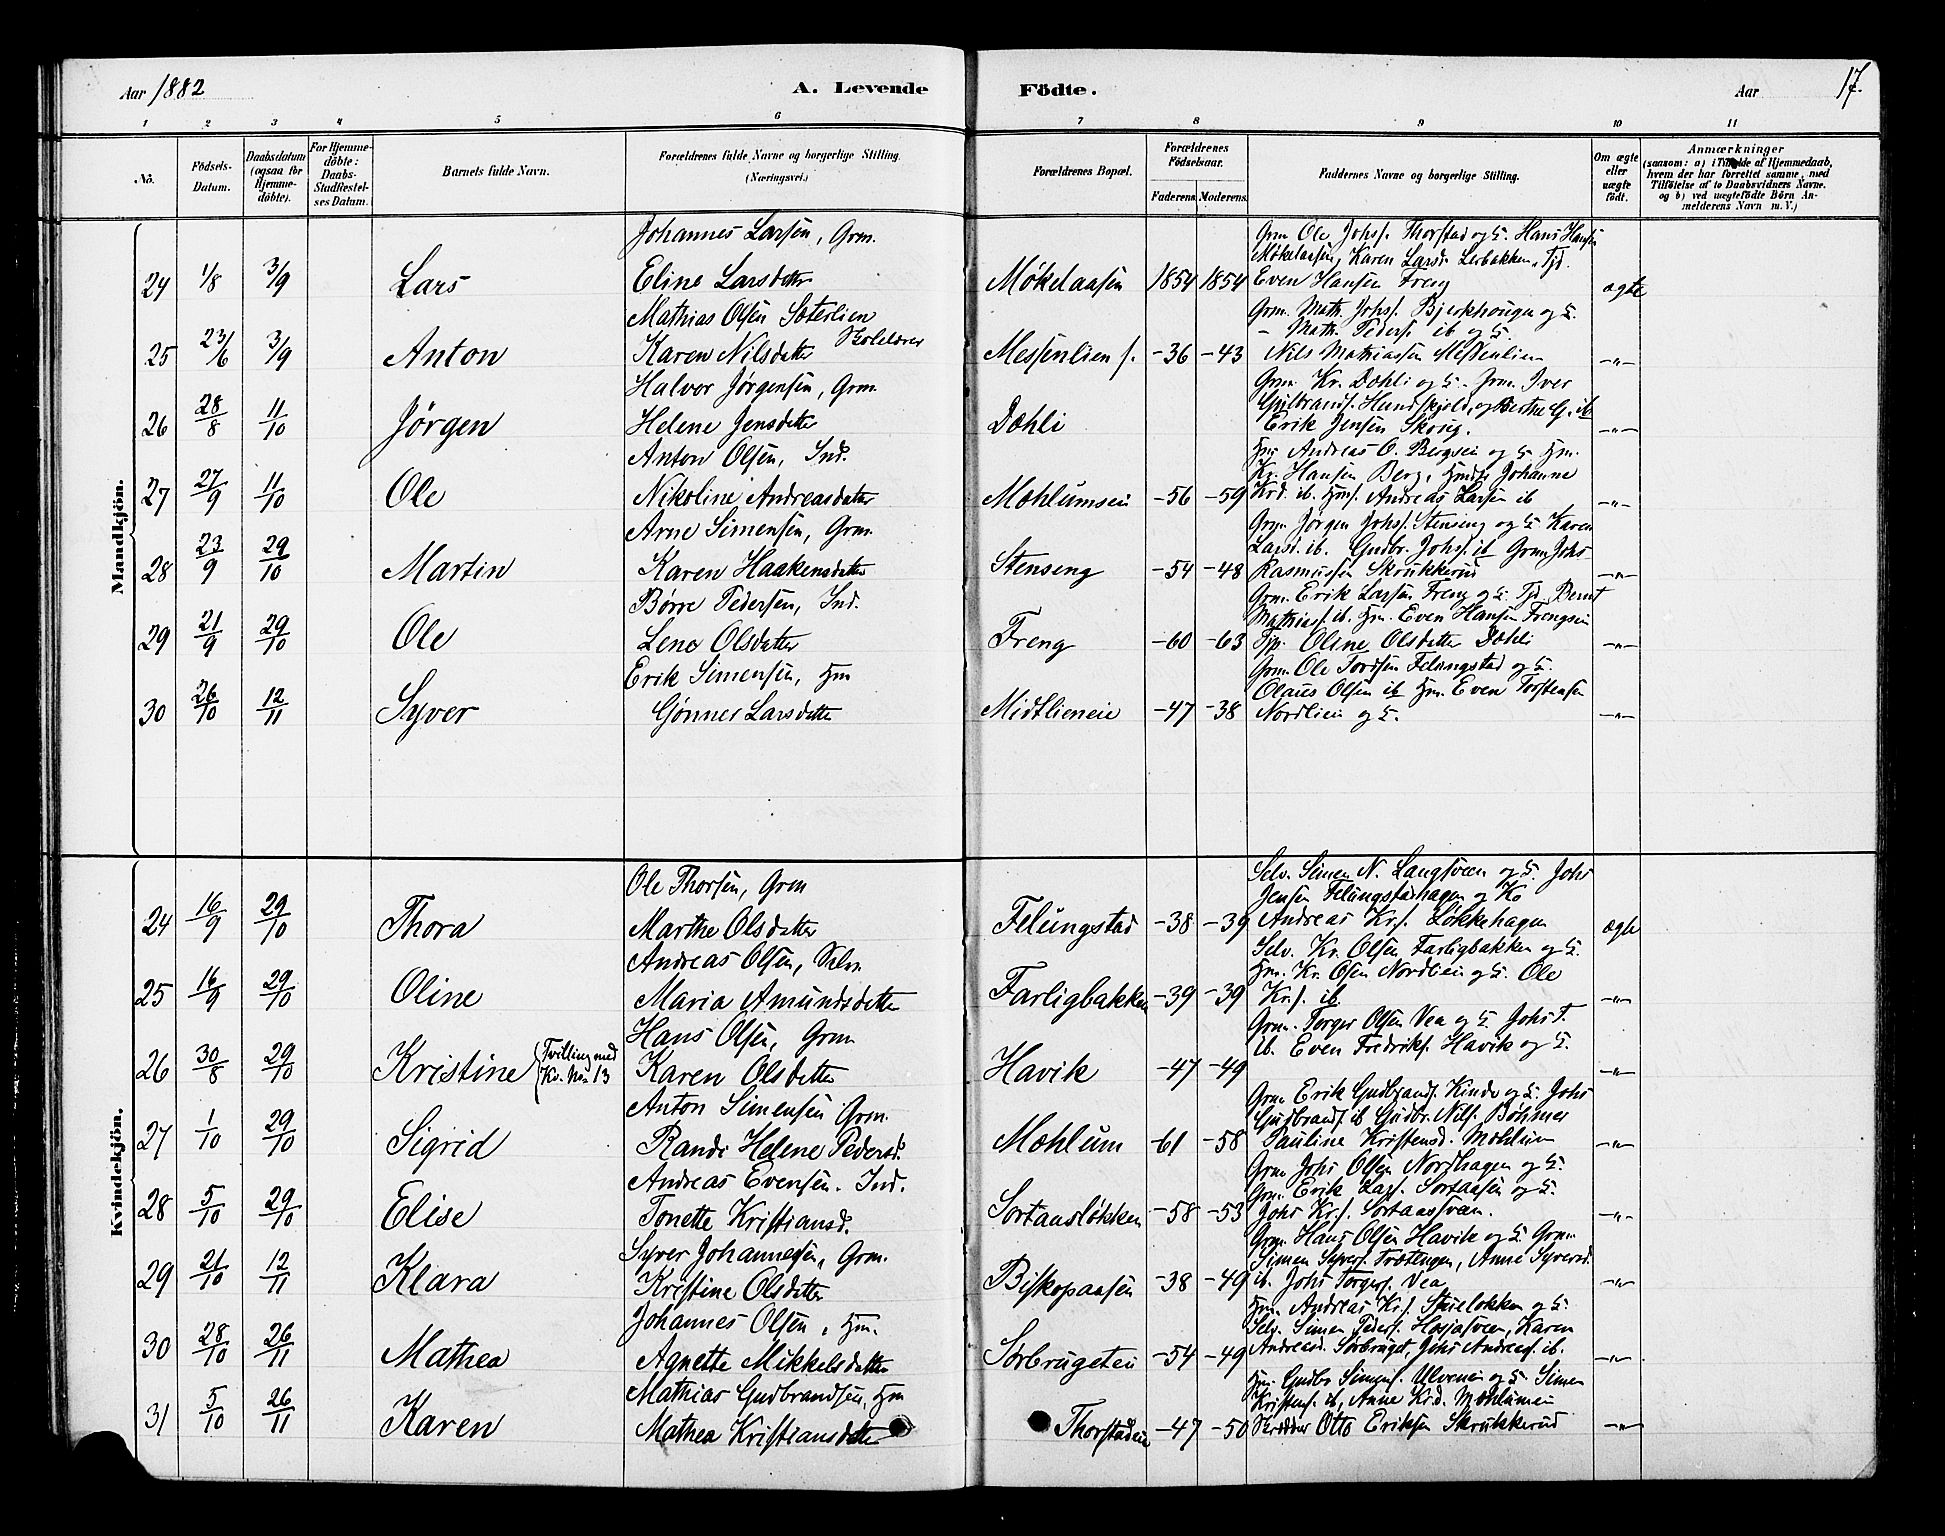 Aar 1882
A. Levende Födte.
Aar
17.
1 2 3 4 5 6 7 8 9 10 11
No.
Födsels-Datum.
Daabsdatum (ogsaa for Hjemme-döbte).
For Hjemme-döbte: Daabs-Stadfæstel-ses Datum.
Barnets fulde Navn.
Forældrenes fulde Navne og borgerlige Stilling. (Næringsvei.)
Forældrenes Bopæl.
Forældrenes Födselsaar.
Faderens Moderens
Faddernes Navne og borgerlige Stilling.
Om ægte eller uægte födt.
Anmærkninger
(saasom: a) i Tilfælde af Hjemmedaab, hvem der har forrettet samme, med Tilföielse af to Daabsvidners Navne. og b) ved uægtefödte Börn An-melderens Navn m. V.)
Mandkjön.
Johannes Larsen, Grm.
Grm Ole Johs. Thorstad og H. Hans Hansen
Møkelaasen, Karen Larsd. Lerbakken, Tjd.
24 1/8 3/9 Lars Eline Larsdatter Møkelaasen 1854 1854 Even Hansen Freng ægte
Mathias Olsen Sæterlien Skolelærer
Grm. Math. Johs. Bjerkhougen og H.
– Math. Peders. ib og H.
25 23/6 3/9 Anton Karen Nilsdatter Messenlien s. -36 -43 Nils Mathiassen Messenlien -"-
Halvor Jørgensen, Grm.
Grm. Kr. Dæhli og H. Grm. Iver
Gulbrands. Hundskjold, og Berthe G. ib
26 28/8 11/10 Jørgen Helene Jensdatter Dæhli Erik Jensen Skoug. -"-
Anton Olsen, Ind.
Hm. Andreas O. Bergseie og H. Hm.
Kr. Hansen Berg, Johanne
27 27/9 11/10 Ole Nikoline Andreasdatter Mæhlumseie -56 -59 Krd. ib. Andreas Larsen ib -"-
Arne Simensen, Grm.
Grm Jørgen Johs. Stenseng og H. Karen
Larsd. ib. Gudbr. Johs. ib Grm. Johs
28 23/9 29/10 Martin Karen Haakensdatter Stenseng -54 -48 Rasmussen Skrukkerud -"-
Børre Pedersen, Ind.
Grm. Erik Larsen Freng og H. Tjd. Bernt
Mathias. ib. Hm. Even Hansen Frengseie
29 21/9 29/10 Ole Lene Olsdatter Freng -60 -63 Tjp. Oline Olsdatter Dæhli -"-
Erik Simensen, Hm
Grm Ole Tordsen Felungstad og H.
Olaus Olsen ib Hm. Even Torstensen
30 26/10 12/11 Syver Gønner Larsdatter Midtlieneie -47 -38 Nordlien og H. -"-
Kvindekjön.
Ole Thorsen, Grm
Selv. Simen N. Langsveen og H. Johs
Jensen Felungstadhagen og K.
24 16/9 29/10 Thora Marthe Olsdatter Felungstad -38 -39 Andreas Kr.s. Løkkehagen ægte
Andreas Olsen, Selv.
Selv. Kr. Olsen Farligbakken og H.
Hm. Kr. Olsen Nordlien og H. Ole
25 16/9 29/10 Oline Maria Amundsdatter Farligbakken -39 -39 Kr.s. ib -"-
Hans Olsen, Grm.
Grm. Torger Olsen Vea og H. Johs T.
ib. Even Fredriks. Havik og H.
26 30/8 29/10 Kristine (Tvilling med Kv. No 13 Karen Olsdatter Havik -47 -49 -"-
Anton Simensen Grm.
Grm Erik Gudbrands. Kinde og H. Johs
Gudbrands. ib Gudbr. Nils. Bøhmer
27 1/10 29/10 Sigrid Randi Helene Pedersd. Mæhlum 61 -58 Pauline Kristensd. Mæhlum -"-
Andreas Evensen. Ind.
Grm Johs Olsen Nordhagen og H.
Grm. Erik Lars. Sortaasen og H.
28 5/10 29/10 Elise Tonette Kristiansd. Sortaasløkken -58 -53 Johs Kr.s. Sortaassvæn. -"-
Syver Johannesen, Grm.
Grm. Hans Olsen Havik og H. Grm.
Simen Syvers. Trætengen, Anne Syversd.
29 21/10 12/11 Klara Kristine Olsdatter Biskopaasen -38 -49 ib. Johs Torgers. Vea -"-
Johannes Olsen, Hm.
Hm. Andreas Kr.s. og H.
Selv. Simen Peders. Hasjasveen, Karen
30 28/10 26/11 Mathea Agnette Mikkelsdatter Sørbrugeteie -54 -49 Andreasd. Sørbruget, Johs Andreas. ib. -"-
Mathias Gudbrandsen, Hm
Hm. Gudbr Simens. Ulveneie og H. Simen
Kristens. ib, Anne Kr.d. Mæhlumeie
31 5/10 26/11 Karen Mathea Kristiansdatter Thorstadeie -47 -50 Skrædder Otto Eriksen Skrukkerud -"-